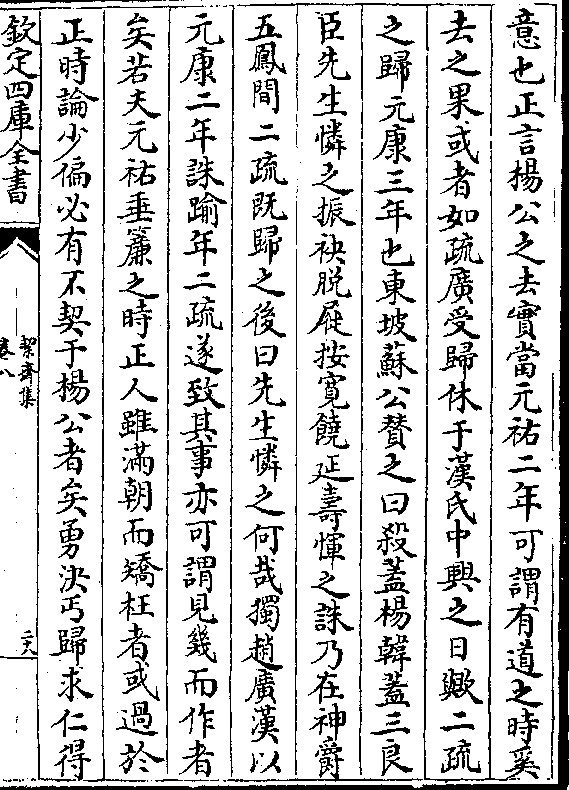 意也正言楊公之去實當元祐二年可謂有道之時奚
去之果或者如疏廣受歸休于漢氏中興之日歟二疏
之歸元康三年也東坡蘇公賛之曰殺蓋楊韓蓋三良
臣先生憐之振袂脱屣按寛饒延壽惲之誅乃在神爵
五鳳間二疏既歸之後曰先生憐之何哉獨趙廣漢以
元康二年誅踰年二疏遂致其事亦可謂見幾而作者
矣若夫元祐垂簾之時正人雖滿朝而矯枉者或過於
正時論少偏必有不契于楊公者矣勇決丐歸求仁得
欽定四庫全書
絜齋集
卷八
二六